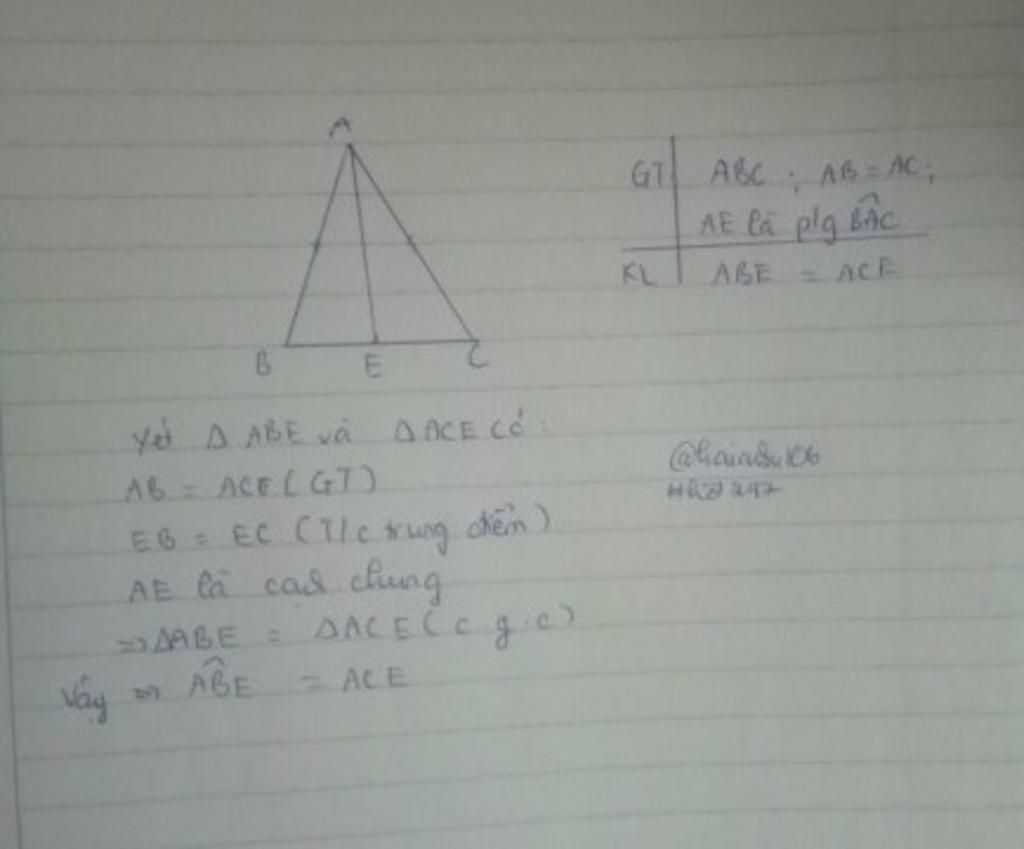 A
B
E
C
GT ABC ; AB = AC ;
AE là p/g BÂC
KL ABE = ACE
Xét Δ ABE và Δ ACE có :
AB = ACE (GT)
EB = EC (T/c trung điểm)
AE là cạh chung
=> ΔABE = ΔACE (c g.c)
Vây => AB̂E = ACE